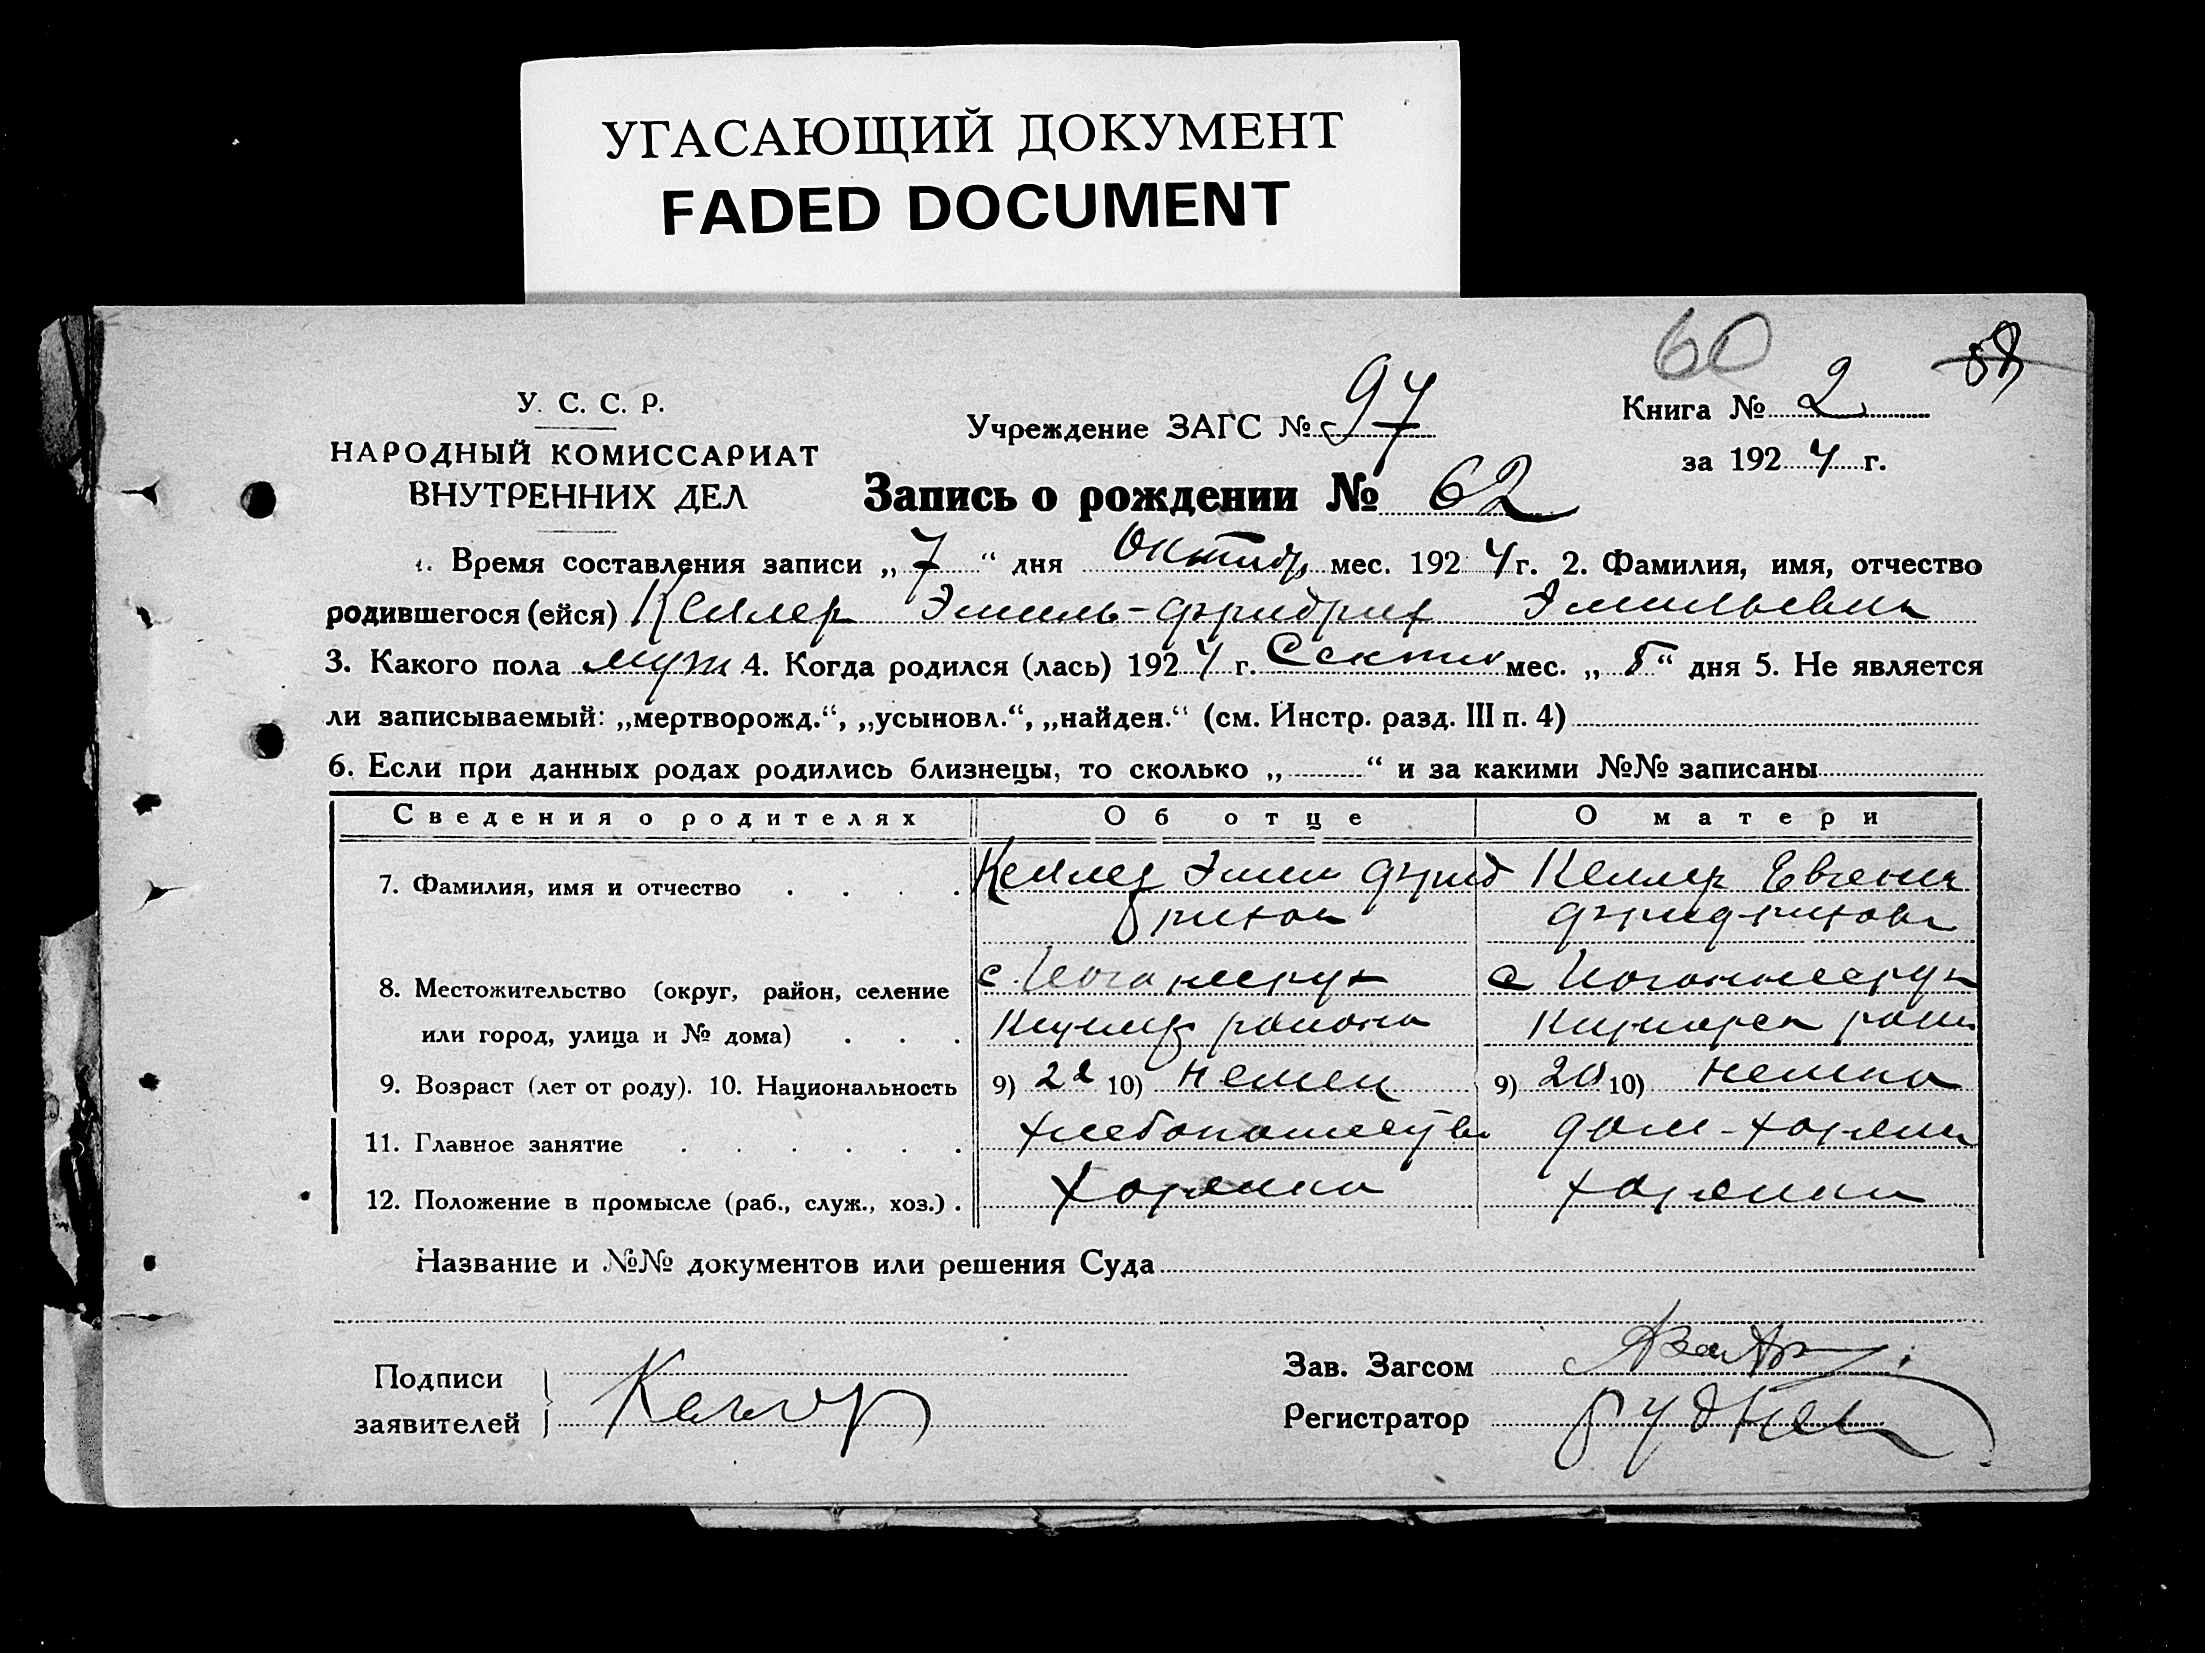 УГАСАЮЩИЙ ДОКУМЕНТ
FADED DOCUMENT
60 58
У. С. С. Р.
НАРОДНЫЙ КОМИССАРИАТ
ВНУТРЕННИХ ДЕЛ
Учреждение ЗАГС № 97
Книга № 2
за 1924 г.
Запись о рождении № 62
1. Время составления записи „7“ дня Октябр мес. 1924 г. 2. Фамилия, имя, отчество
родившегося (ейся) Келлер Эмиль-Фридрих Эмильевич
3. Какого пола муж 4. Когда родился (лась) 1924 г. Сентяб мес. „5“ дня 5. Не является
ли записываемый: „мертворожд.“, „усыновл.“, „найден.“ (см. Инстр. разд. III п. 4)
6. Если при данных родах родились близнецы, то сколько „ “ и за какими №№ записаны
Сведения о родителях Об отце О матери
7. Фамилия, имя и отчество Келлер Эмил Фрид Келлер Евгения
рихов Фридрихова
8. Местожительство (округ, район, селение с. с
или город, улица и № дома) района
9. Возраст (лет от роду). 10. Национальность 9) 22 10) немец 9) 20 10) немка
11. Главное занятие хлебопашеств дом-хозяик
12. Положение в промысле (раб., служ., хоз.) хозяин хозяйка
Название и №№ документов или решения Суда
Подписи
заявителей
Зав. Загсом
Регистратор